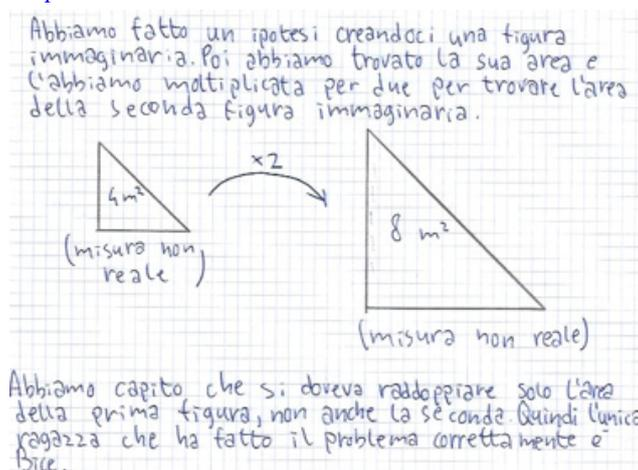 Abbiamo fatto un ipotesi creandoci una figura
immaginaria. Poi abbiamo trovato la sua area e
l'abbiamo moltiplicata per due per trovare l'area
della seconda figura immaginaria.
x2
4m²
8 m²
(misura non
reale)
(misura non reale)
Abbiamo capito che si doveva raddoppiare solo l'area
della prima figura, non anche la seconda. Quindi l'unica
ragazza che ha fatto il problema correttamente è
Bice.